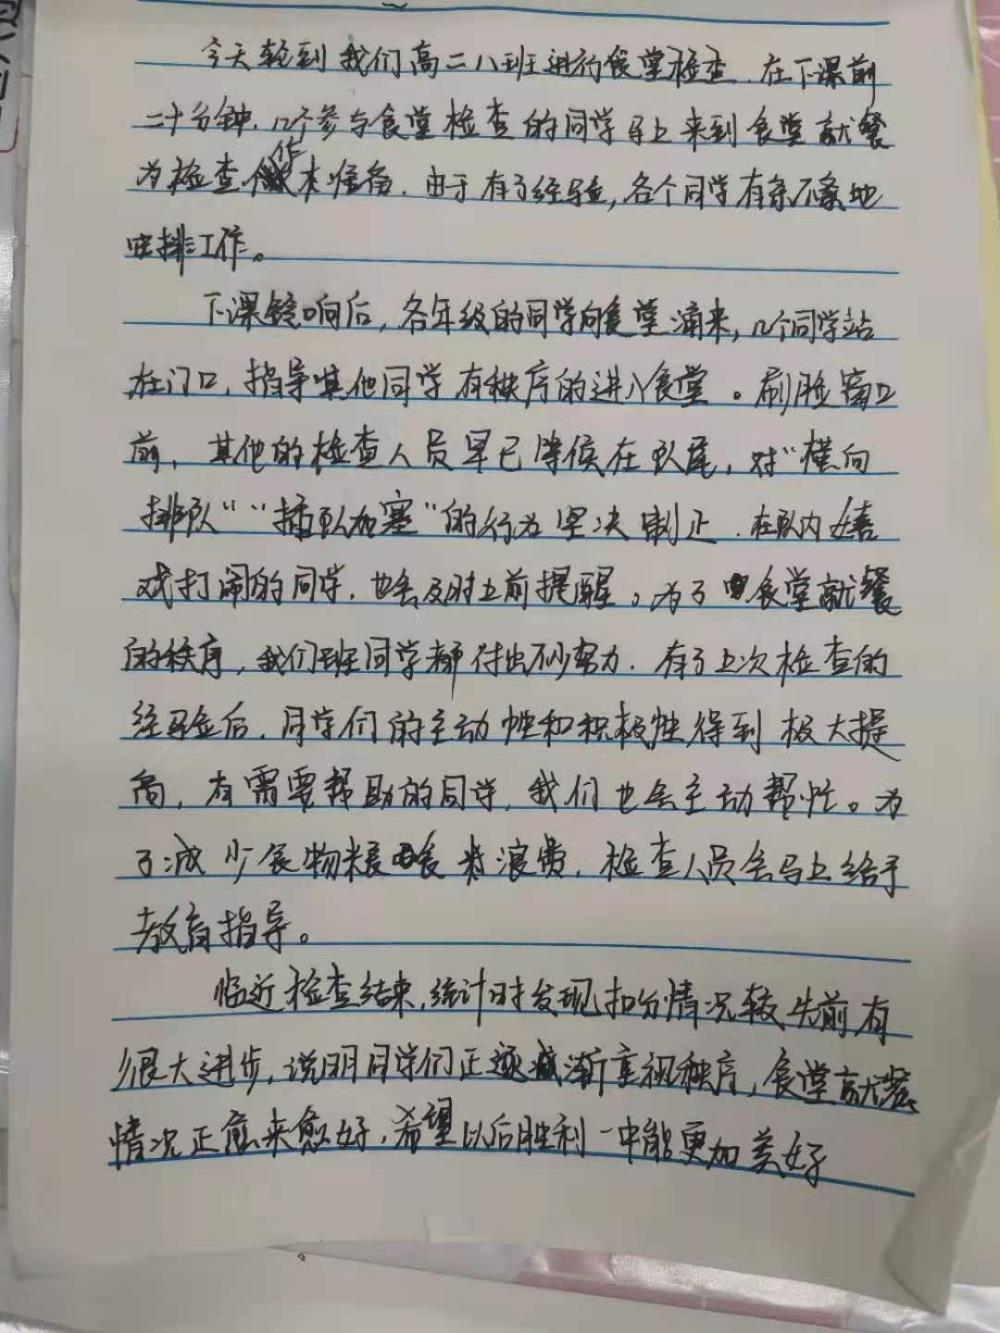 今天轮到我们高二八班进行食堂检查.在下课前
二十分钟,几个参与食堂检查的同学马上来到食堂就餐
为检查作准备.由于有了经验,各个同学有条不紊地
安排工作。
下课铃响后,各年级的同学向食堂涌来,几个同学站
在门口,指导其他同学有秩序的进入食堂。刷脸窗口
前,其他的检查人员早已等候在队尾,对“横向
排队”“插队加塞”的行为坚决制止.在队内嬉
戏打闹的同学,也会及时上前提醒。为了食堂就餐
的秩序,我们班同学都付出不少努力.有了上次检查的
经验后,同学们的主动性和积极性得到极大提
高,有需要帮助的同学,我们也会主动帮忙。为
了减少食物粮食浪费,检查人员会马上给予
教育指导。
临近检查结束,统计时发现扣分情况较先前有
很大进步,说明同学们正逐渐重视秩序,食堂就餐
情况正愈来愈好,希望以后胜利一中能更加美好